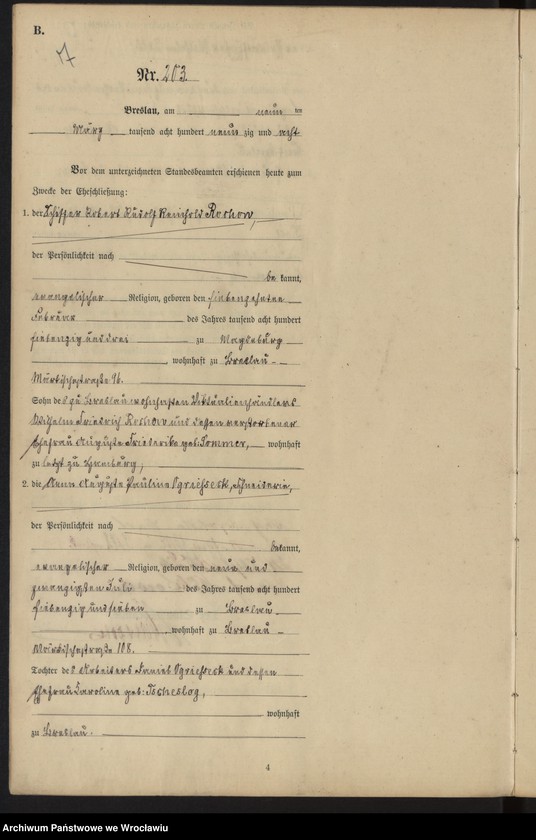 B.
7
Nr. 203
Breslau, am neun ten
März tausend acht hundert neun zig und acht
Vor dem unterzeichneten Standesbeamten erschienen heute zum
Zwecke der Eheschließung:
1. der Schiffer Robert Rudolf Reinhold Rochow,
der Persönlichkeit nach
be kannt,
evangelischer Religion, geboren den siebenzehnten
Februar des Jahres tausend acht hundert
siebenzig und drei zu Magdeburg
, wohnhaft zu Breslau
Märkischestraße 96.
Sohn des zu Breslau wohnhaften Viktualienhändlers
Wilhelm Friedrich Rochow und dessen verstorbener
Ehefrau Auguste Friederike geb: Sommer, wohnhaft
zu letzt zu Hamburg,
2. die Anna Auguste Pauline Ogrichseck, Schneiderin,
der Persönlichkeit nach
bekannt,
evangelischer Religion, geboren den neun und
zwanzigsten Juli des Jahres tausend acht hundert
siebenzig und sieben zu Breslau
, wohnhaft zu Breslau
Märkischestraße 108.
Tochter des Arbeiters Daniel Ogrichseck und dessen
Ehefrau Karoline geb:
wohnhaft
zu Breslau.
4
Archiwum Państwowe we Wrocławiu